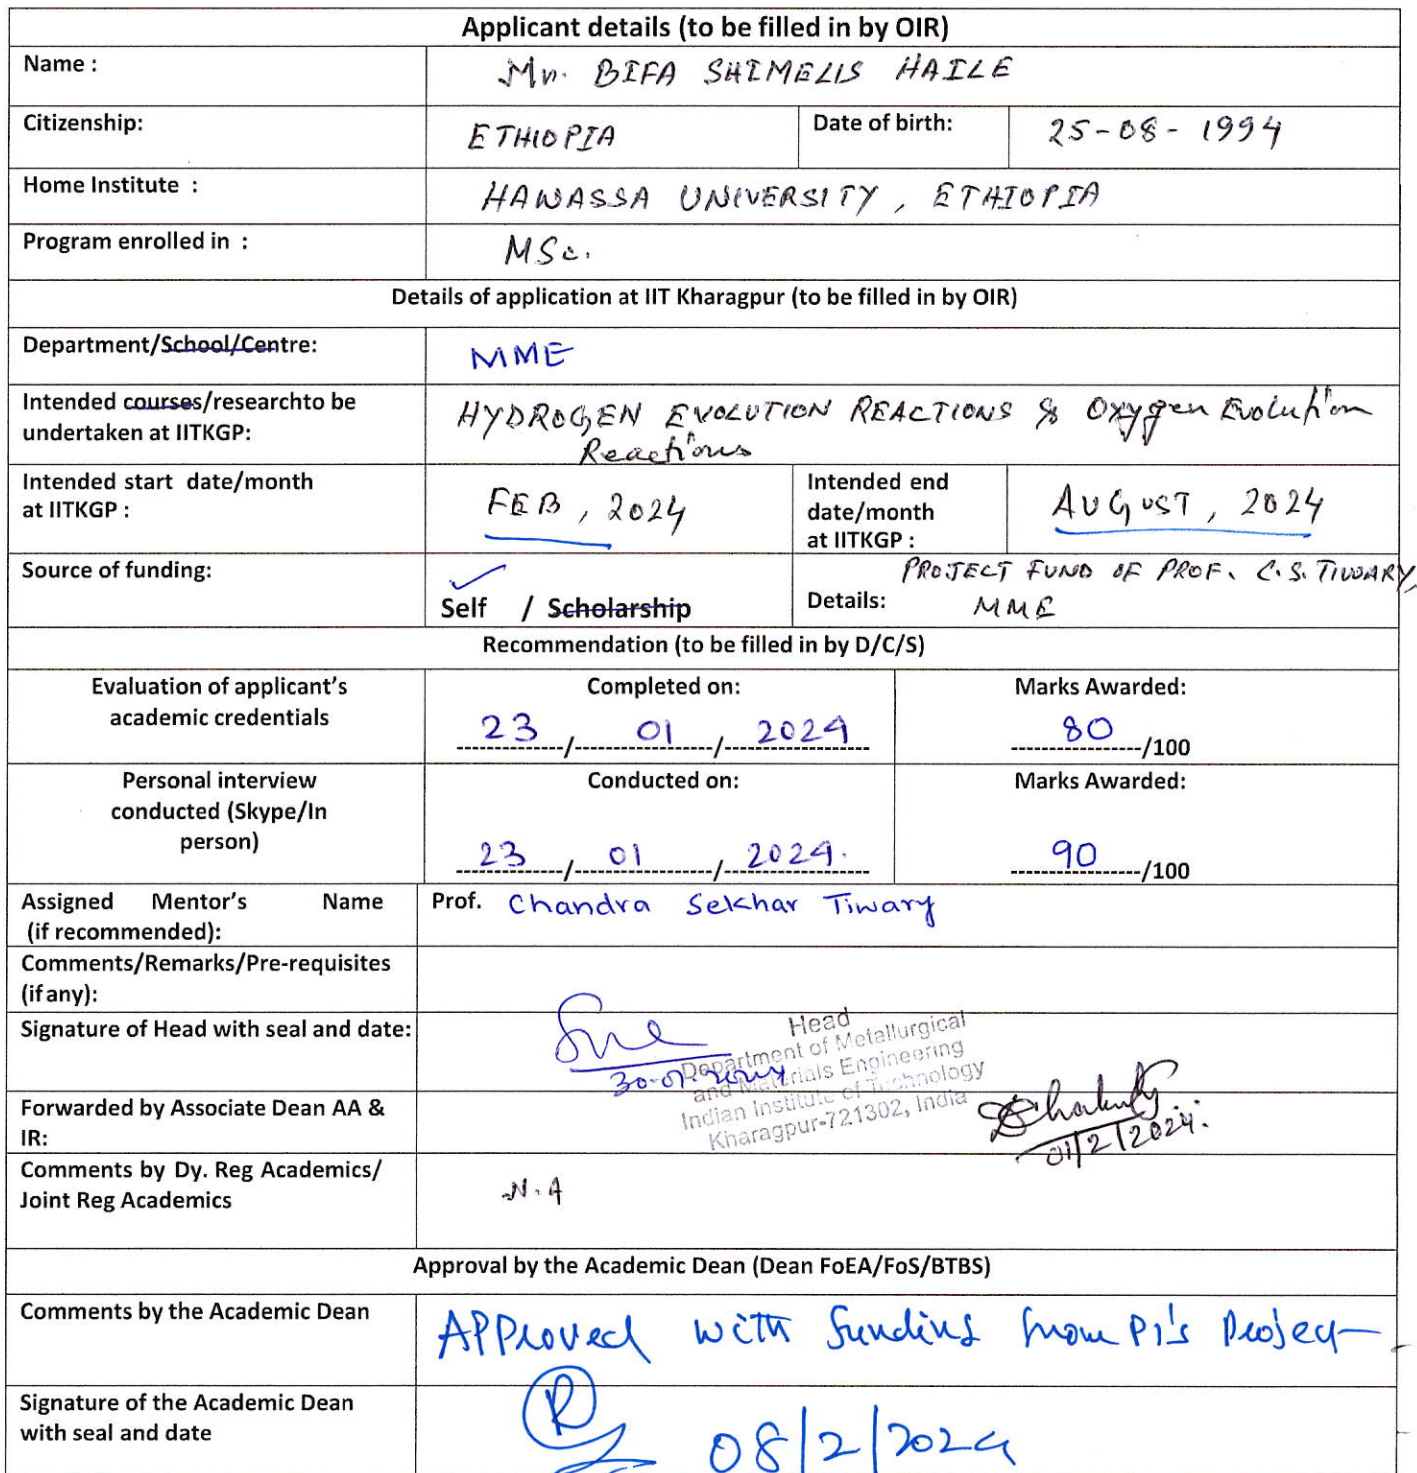 Applicant details (to be filled in by OIR)
Name : Mr. BIFA SHIMELIS HAILE
Citizenship: ETHIOPIA Date of birth: 25-08-1994
Home Institute : HAWASSA UNIVERSITY, ETHIOPIA
Program enrolled in : MSc.
Details of application at IIT Kharagpur (to be filled in by OIR)
Department/School/Centre: MME
Intended courses/researchto be
undertaken at IITKGP:
HYDROGEN EVOLUTION REACTIONS & Oxygen Evolution
Reactions
Intended start date/month
at IITKGP :
FEB, 2024
Intended end
date/month
at IITKGP :
AUGUST, 2024
Source of funding:
Self / Scholarship
Details:
PROJECT FUND OF PROF. C.S. TIWARY,
MME
Recommendation (to be filled in by D/C/S)
Evaluation of applicant's
academic credentials
Completed on:
23/01/2024
Marks Awarded:
80/100
Personal interview
conducted (Skype/In
person)
Conducted on:
23/01/2024.
Marks Awarded:
90/100
Assigned Mentor's Name
(if recommended):
Prof. Chandra Sekhar Tiwary
Comments/Remarks/Pre-requisites
(if any):
Signature of Head with seal and date:
30-01-2024
Head
Department of Metallurgical
and Materials Engineering
Indian Institute of Technology
Kharagpur-721302, India
Forwarded by Associate Dean AA &
IR:
01/2/2024.
Comments by Dy. Reg Academics/
Joint Reg Academics
N.A
Approval by the Academic Dean (Dean FoEA/FoS/BTBS)
Comments by the Academic Dean
Approved with funding from PI's Project
Signature of the Academic Dean
with seal and date
08/2/2024